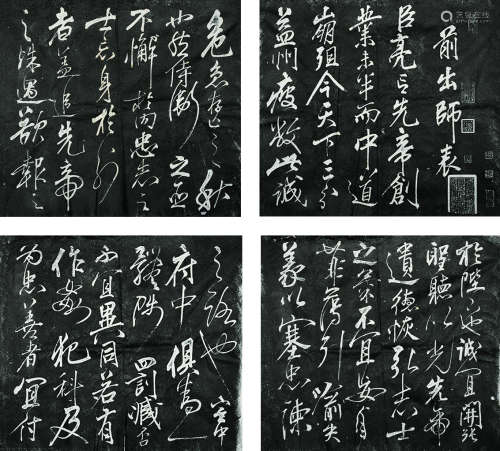 前出師表
臣亮言先帝創
業未半而中道
崩殂今天下三分
益州疲敝此誠
危急存亡之秋
也然侍衛之臣
不懈於內忠志之
士忘身於外
者蓋追先帝
之殊遇欲報之
於陛下也誠宜開張
聖聽以光先帝
遺德恢弘志士
之氣不宜妄自
菲薄引喻失
義以塞忠諫
之路也宮中
府中俱為一
體陟罰臧否
不宜異同若有
作姦犯科及
為忠善者宜付